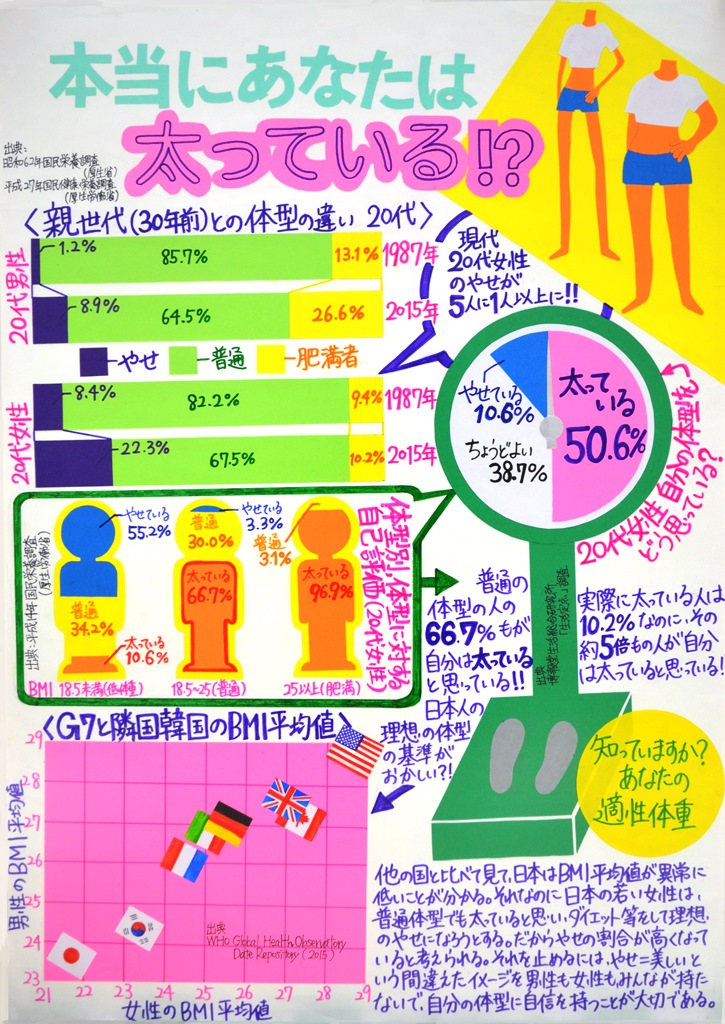 本当にあなたは
太っている!?
出典:
昭和62年国民栄養調査
(厚生省)
平成27年国民健康・栄養調査
(厚生労働省)
〈親世代(30年前)との体型の違い 20代〉
20代男性
1.2%
85.7%
13.1%
1987年
8.9%
64.5%
26.6%
2015年
やせ
普通
肥満者
20代女性
8.4%
82.2%
9.4%
1987年
22.3%
67.5%
10.2%
2015年
現代
20代女性
のやせが
5人に1人以上に!!
やせている
10.6%
ちょうどよい
38.7%
太って
いる
50.6%
20代女性 自分の体型を
どう思っている?
体型別、体型に対する
自己評価(20代女性)
出典:平成14年国民栄養調査
(厚生労働省)
やせている
55.2%
普通
34.2%
太っている
10.6%
BMI 18.5未満(低体重)
やせている
3.3%
普通
30.0%
太っている
66.7%
18.5~25(普通)
普通
3.1%
太っている
96.9%
25以上(肥満)
普通の
体型の人の
66.7%もが
自分は太っている
と思っている!!
日本人の
理想の体型
の基準が
おかしい?!
出典
博報堂生活総合研究所
「生活定点」調査
実際に太っている人は
10.2%なのに、その
約5倍もの人が自分
は太っていると思っている!
〈G7と隣国韓国のBMI平均値〉
男性のBMI平均値
29
28
27
26
25
24
23
21
22
23
24
25
26
27
28
29
女性のBMI平均値
出典
WHO Global Health Observatory
Date Repository (2015)
知っていますか?
あなたの
適性体重
他の国と比べて見て、日本はBMI平均値が異常に
低いことが分かる。それなのに日本の若い女性は、
普通体型でも太っていると思い、ダイエット等をして理想
のやせになろうとする。だからやせの割合が高くなって
いると考えられる。それを止めるには、やせ=美しいと
いう間違えたイメージを男性も女性も、みんなが持た
ないで、自分の体型に自信を持つことが大切である。